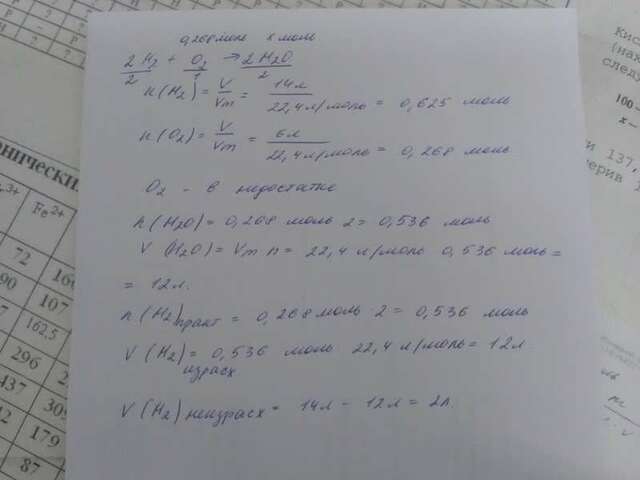 0,268 моль x моль
2H2 + O2 → 2H2O
2 1 2
n(H2) = V/Vm = 14л / 22,4 л/моль = 0,625 моль
n(O2) = V/Vm = 6л / 22,4 л/моль = 0,268 моль
O2 - в недостатке
n(H2O) = 0,268 моль 2 = 0,536 моль
V (H2O) = Vm n = 22,4 л/моль 0,536 моль =
= 12л.
n(H2)практ = 0,268 моль · 2 = 0,536 моль
V(H2)израсх = 0,536 моль 22,4 л/моль = 12л
V(H2)неизрасх = 14л - 12л = 2л.
Fe2+
3+
72
16
90
107
162,5
296
437
179
87
Кис
(нах
след
100
x –
и 137,